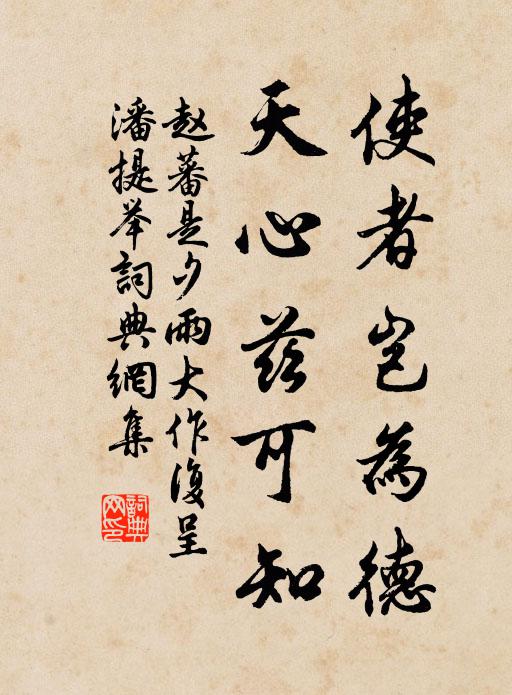 使者岂為德
天心茲可知
赵蕃是夕雨大作復呈
潘提举詞典網集
詞典网印